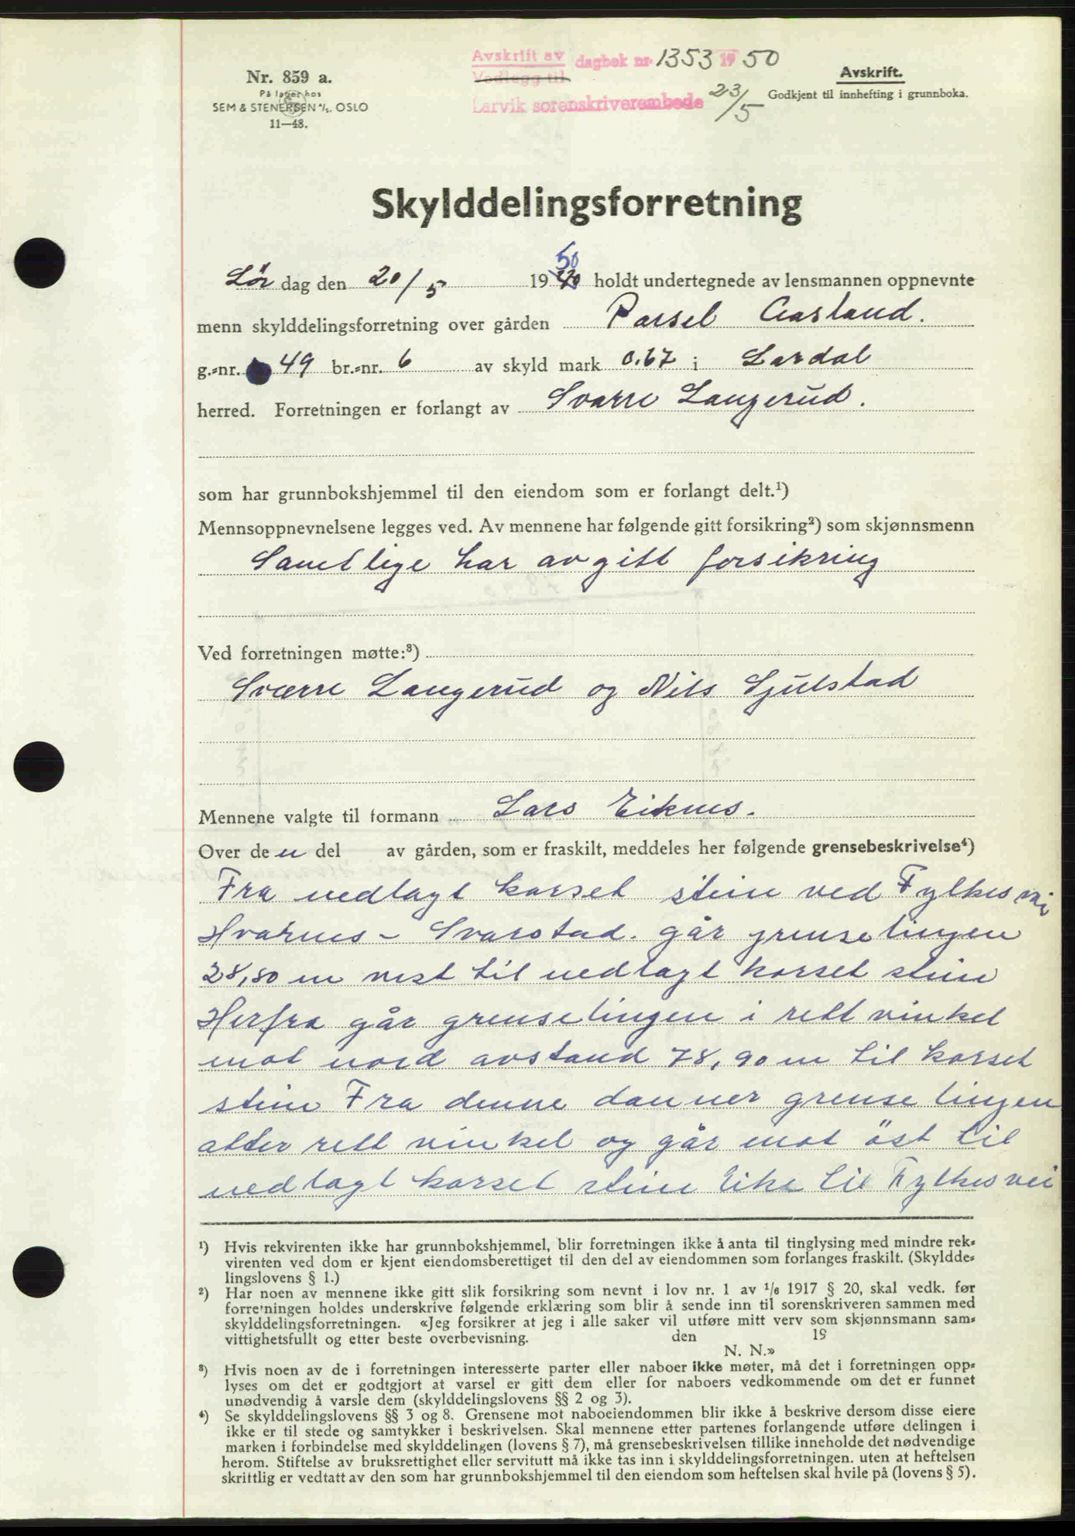 Avskrift av dagbok nr 1353 1950
Vedlegg til
Larvik sorenskriverembede 23/5
Nr. 859 a.
På lager hos
SEM & STENERSEN A/S, OSLO
11—48.
Avskrift.
Godkjent til innhefting i grunnboka.
Skylddelingsforretning
Lør dag den 20/5 1950 holdt undertegnede av lensmannen oppnevnte
menn skylddelingsforretning over gården Parsel Aasland.
g.-nr. 49 br.-nr. 6 av skyld mark 0.67 i Lardal
herred. Forretningen er forlangt av Sverre Langerud.
som har grunnbokshjemmel til den eiendom som er forlangt delt.¹)
Mennsoppnevnelsene legges ved. Av mennene har følgende gitt forsikring²) som skjønnsmenn
Samtlige har avgitt forsikring
Ved forretningen møtte:³)
Sverre Langerud og Nils Gjulstad
Mennene valgte til formann Lars Eiknes.
Over de n del av gården, som er fraskilt, meddeles her følgende grensebeskrivelse⁴)
Fra nedlagt korset stein ved Fylkesvei
Hvarnes - Svarstad. går grenselingen
28,80 m vest til nedlagt korset stein
Herfra går grenselingen i rett vinkel
mot nord avstand 78,90 m til korset
stein Fra denne danner grenselingen
atter rett vinkel og går mot öst til
nedlagt korset stein like til Fylkesvei
¹) Hvis rekvirenten ikke har grunnbokshjemmel, blir forretningen ikke å anta til tinglysing med mindre rek-
virenten ved dom er kjent eiendomsberettiget til den del av eiendommen som forlanges fraskilt. (Skyldde-
lingslovens § 1.)
²) Har noen av mennene ikke gitt slik forsikring som nevnt i lov nr. 1 av 1/6 1917 § 20, skal vedk. før
forretningen holdes underskrive følgende erklæring som blir å sende inn til sorenskriveren sammen med
skylddelingsforretningen. «Jeg forsikrer at jeg i alle saker vil utføre mitt verv som skjønnsmann sam-
vittighetsfullt og etter beste overbevisning. den 19
N. N.»
³) Hvis noen av de i forretningen interesserte parter eller naboer ikke møter, må det i forretningen opp-
lyses om det er godtgjort at varsel er gitt dem eller for naboers vedkommende om det er funnet
unødvendig å varsle dem (skylddelingslovens §§ 2 og 3).
⁴) Se skylddelingslovens §§ 3 og 8. Grensene mot naboeiendommen blir ikke å beskrive dersom disse eiere
ikke er til stede og samtykker i beskrivelsen. Skal mennene etter partenes forlangende utføre delingen i
marken i forbindelse med skylddelingen (lovens § 7), må grensebeskrivelsen tillike inneholde det nødvendige
herom. Stiftelse av bruksrettighet eller servitutt må ikke tas inn i skylddelingsforretningen. uten at heftelsen
skrittlig er vedtatt av den som har grunnbokshjemmel til den eiendom som heftelsen skal hvile på (lovens § 5).